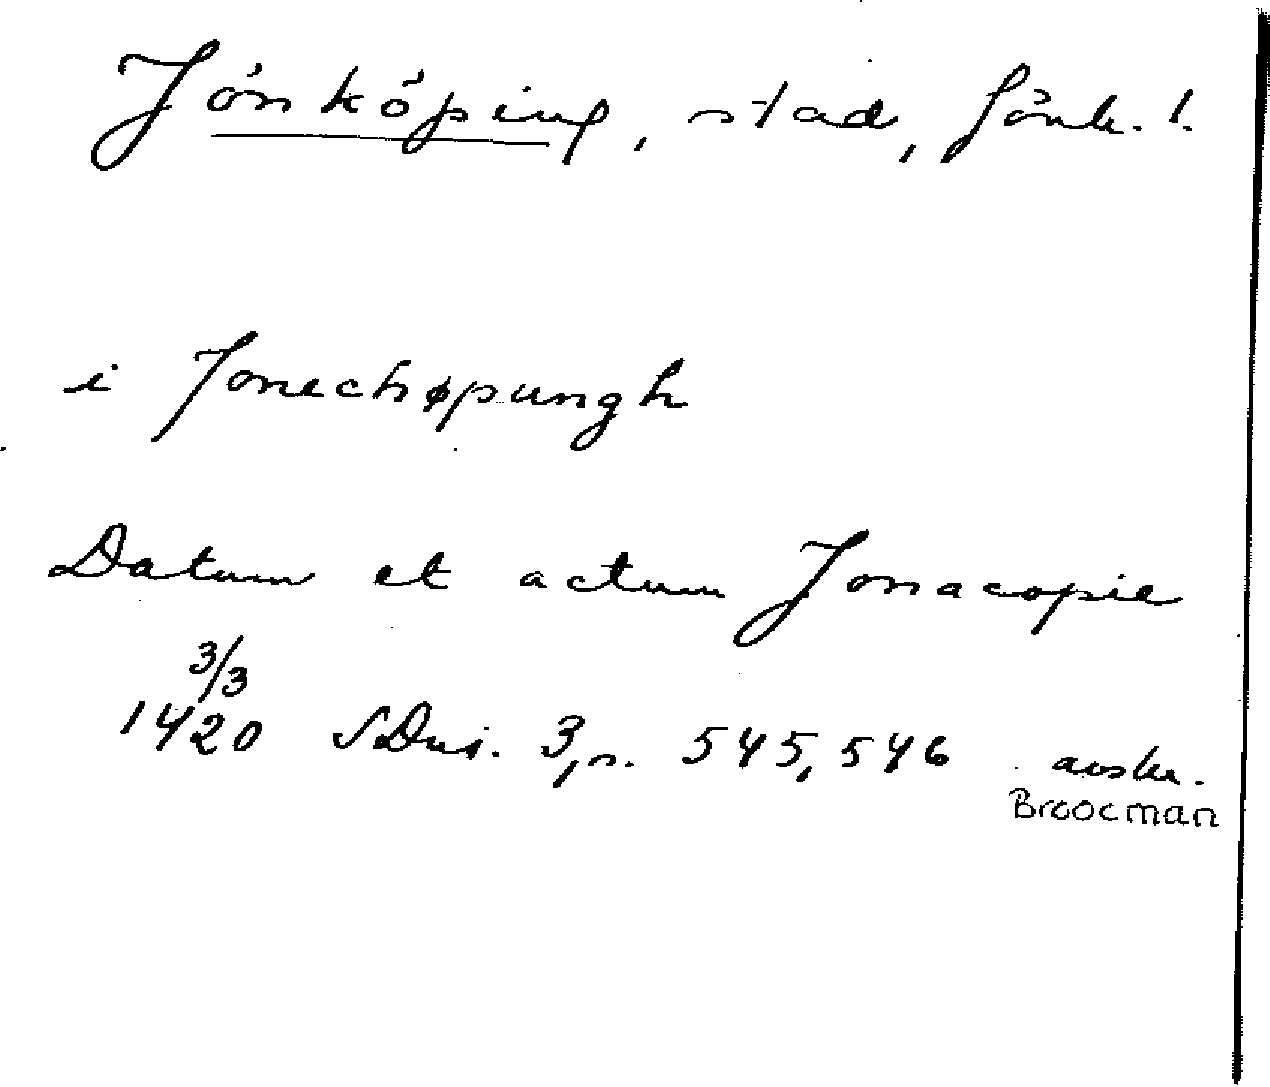 Jönköping, stad, Jönk. l.
i Jonechøpungh
Datum et actum Jonacopie
3/3
1420 SDns. 3, s. 545, 546 avskr.
Broocman